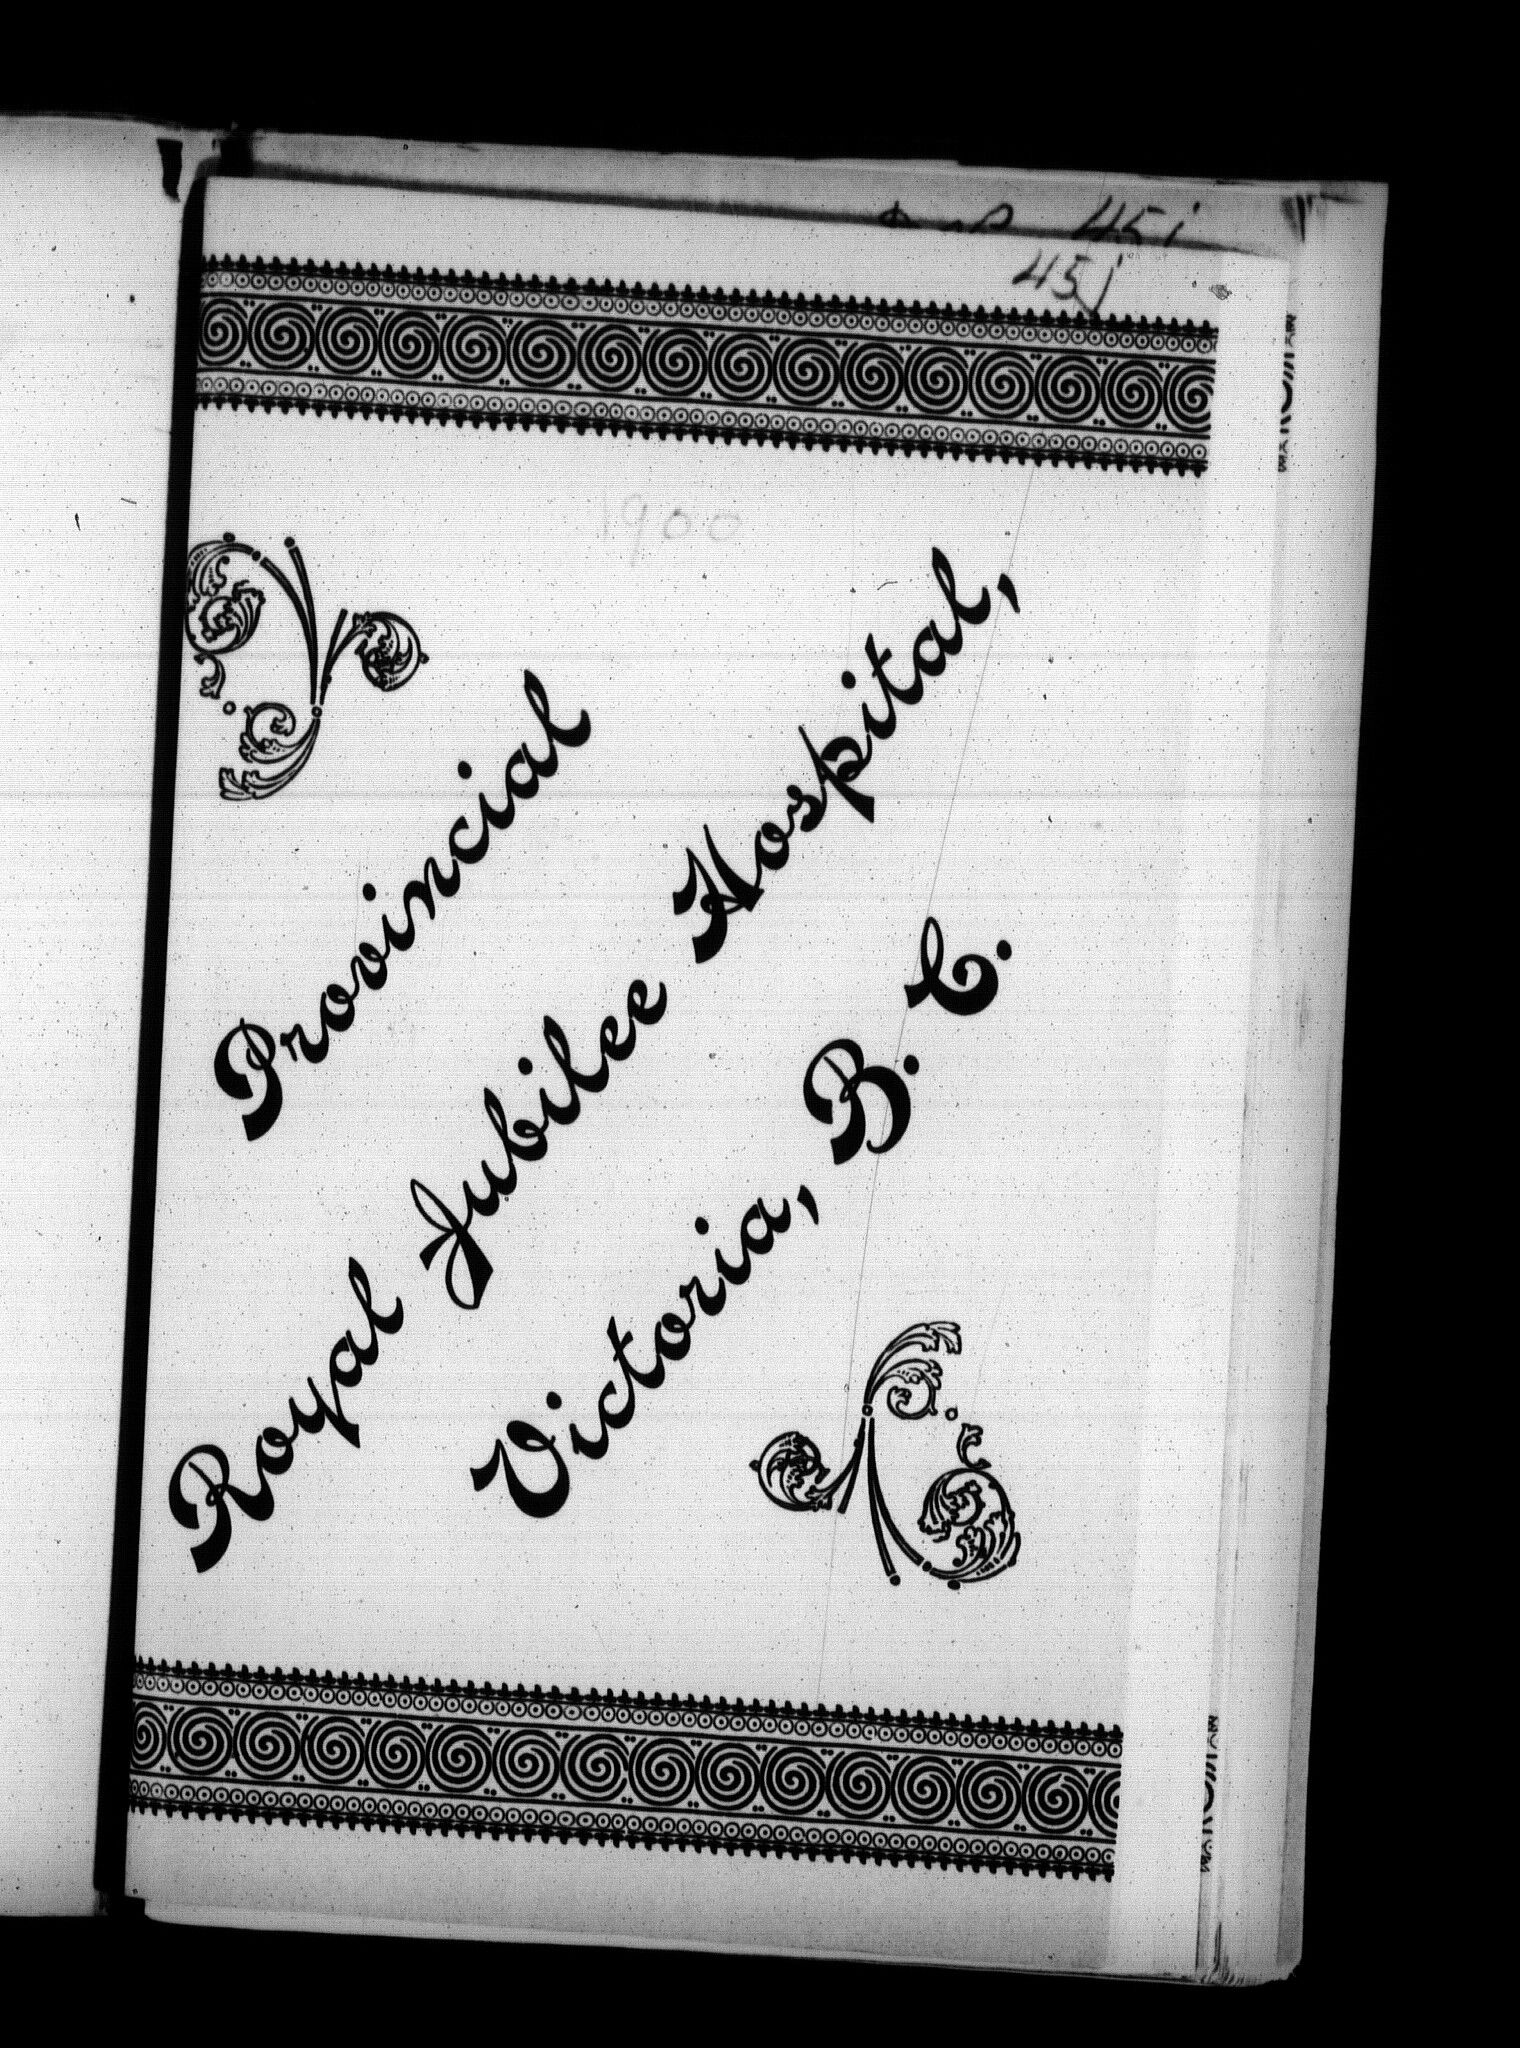 45i
45j
1900
Provincial
Royal Jubilee Hospital,
Victoria, B. C.